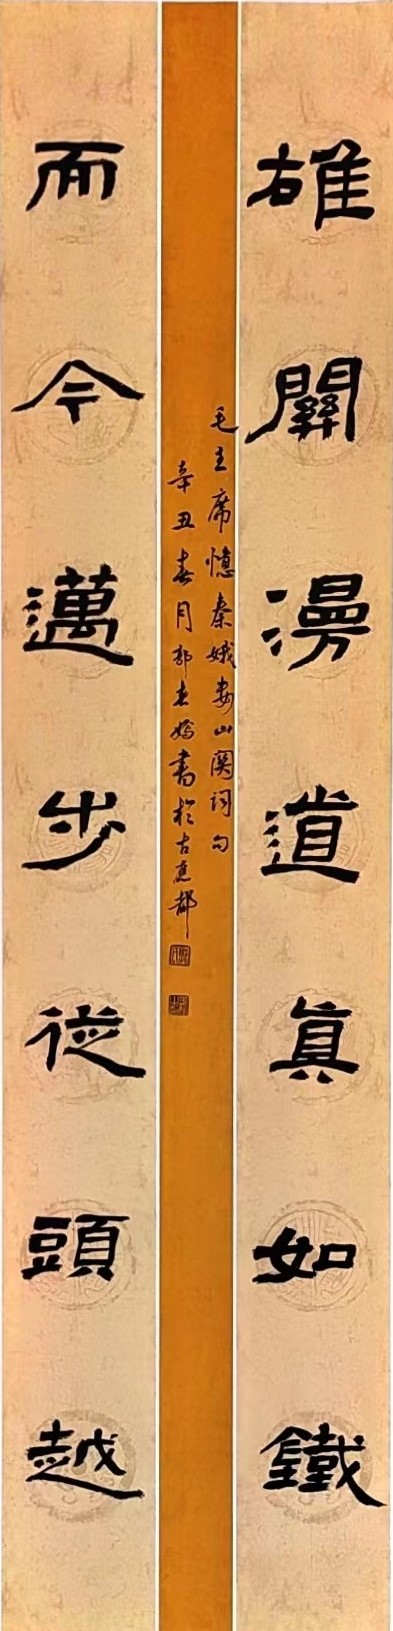 雄關漫道真如鐵
而今邁步從頭越
毛主席憶秦娥娄山関词句
辛丑春月郭书嫣書於古應都